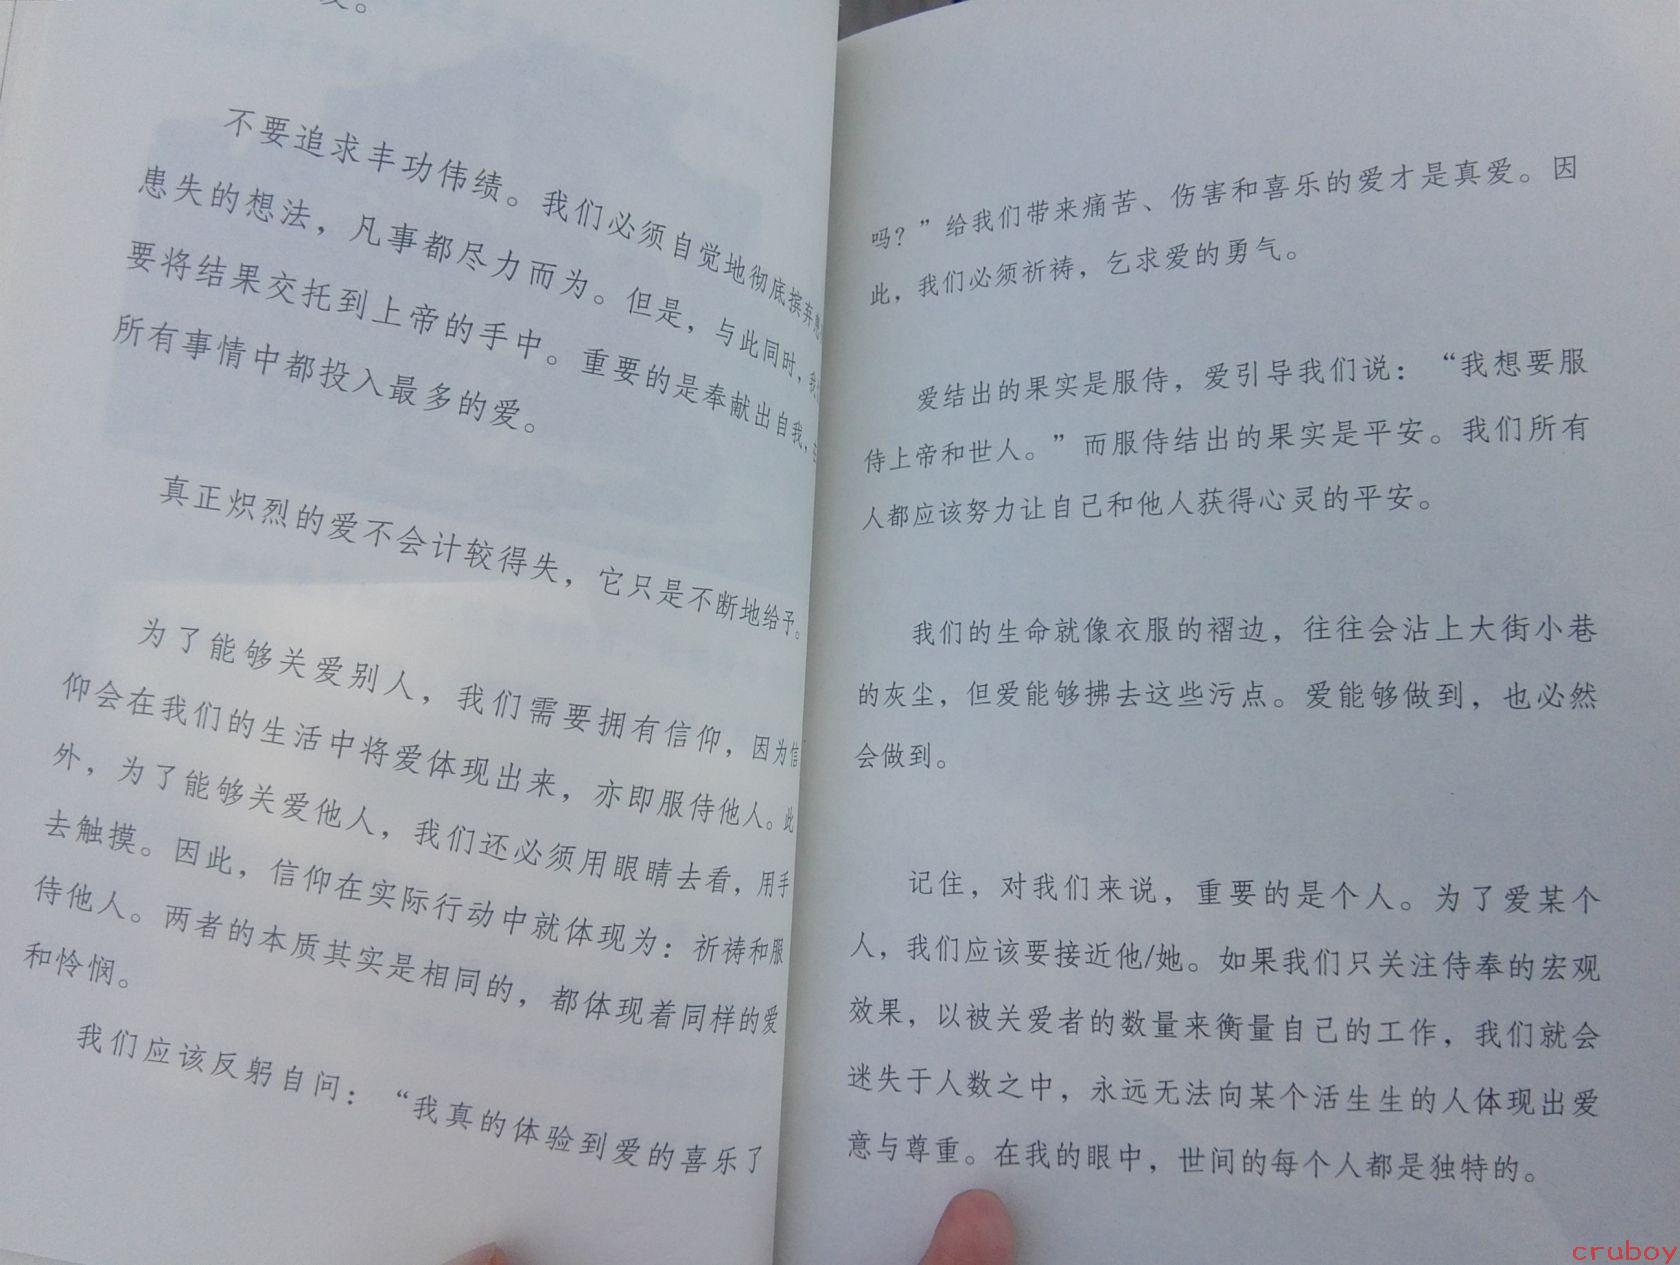 不要追求丰功伟绩。我们必须自觉地彻底摈弃患得
患失的想法，凡事都尽力而为。但是，与此同时，我
要将结果交托到上帝的手中。重要的是奉献出自我，
所有事情中都投入最多的爱。
真正炽烈的爱不会计较得失，它只是不断地给予。
为了能够关爱别人，我们需要拥有信仰，因为信
仰会在我们的生活中将爱体现出来，亦即服侍他人。此
外，为了能够关爱他人，我们还必须用眼睛去看，用手
去触摸。因此，信仰在实际行动中就体现为：祈祷和服
侍他人。两者的本质其实是相同的，都体现着同样的爱
和怜悯。
我们应该反躬自问：“我真的体验到爱的喜乐了
吗？”给我们带来痛苦、伤害和喜乐的爱才是真爱。因
此，我们必须祈祷，乞求爱的勇气。
爱结出的果实是服侍，爱引导我们说：“我想要服
侍上帝和世人。”而服侍结出的果实是平安。我们所有
人都应该努力让自己和他人获得心灵的平安。
我们的生命就像衣服的褶边，往往会沾上大街小巷
的灰尘，但爱能够拂去这些污点。爱能够做到，也必然
会做到。
记住，对我们来说，重要的是个人。为了爱某个
人，我们应该要接近他/她。如果我们只关注侍奉的宏观
效果，以被关爱者的数量来衡量自己的工作，我们就会
迷失于人数之中，永远无法向某个活生生的人体现出爱
意与尊重。在我的眼中，世间的每个人都是独特的。
cruboy